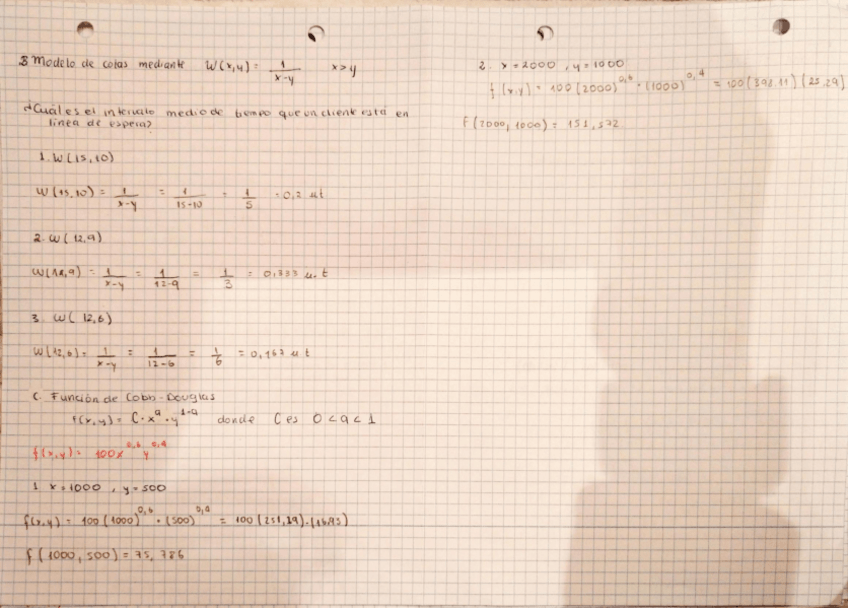 B Modelo de colas mediante W(x,y) = 1/(x-y) x>y
¿Cuál es el intervalo medio de tiempo que un cliente está en
línea de espera?
1. W(15,10)
W(15,10) = 1/(x-y) = 1/(15-10) = 1/5 = 0,2 ut
2. W(12,9)
W(12,9) = 1/(x-y) = 1/(12-9) = 1/3 = 0,333 u.t
3. W(12,6)
W(12,6) = 1/(x-y) = 1/(12-6) = 1/6 = 0,167 ut
C. Función de Cobb-Douglas
f(x,y) = C·x^a·y^1-a donde C es 0<a<1
f(x,y) = 100x^0,6 y^0,4
1 x=1000, y=500
f(x,y) = 100(1000)^0,6·(500)^0,4 = 100(251,19)·(
f(1000, 500) = 75,786
2. x=2000, y=1000
f(x,y) = 100(2000)^0,6·(1000)^0,4 = 100(
f(2000, 1000) = 151,572